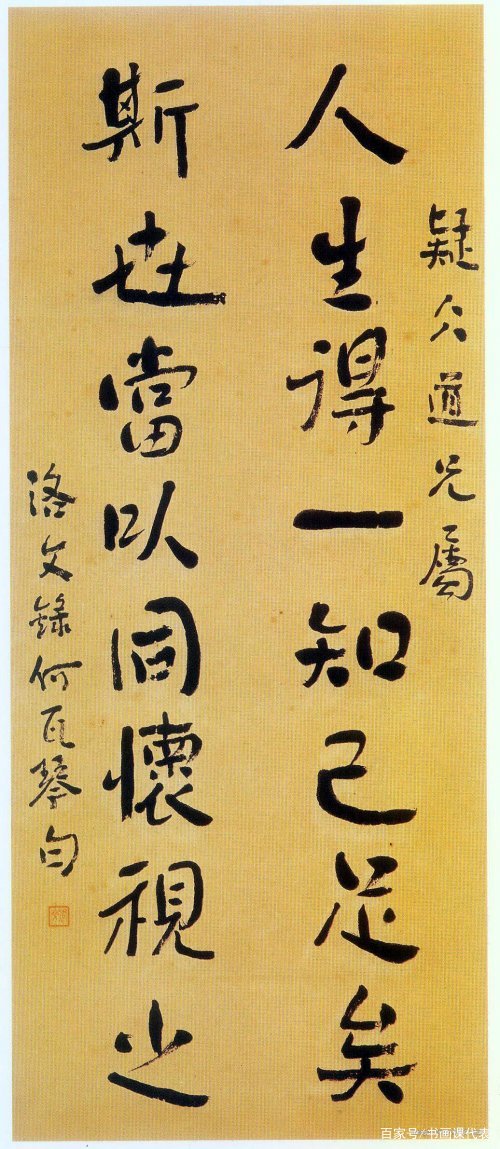 疑仌道兄屬
人生得一知己足矣
斯世當以同懷視之
洛文錄何瓦琴句
百家号/书画课代表